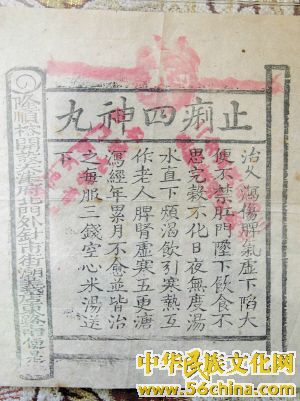 止痢四神丸
治久瀉傷脾氣虛下陷大
便不禁肛門墜下飲食不
思完穀不化日夜無度湯
水直下煩渴飲引寒熱互
作老人脾腎虛寒五更溏
瀉經年累月不愈並皆治
之每服三錢空心米湯送
下
隆順榕開設天津府北門外針市街潮義店東路南便是
中华民族文化网
www.56china.com